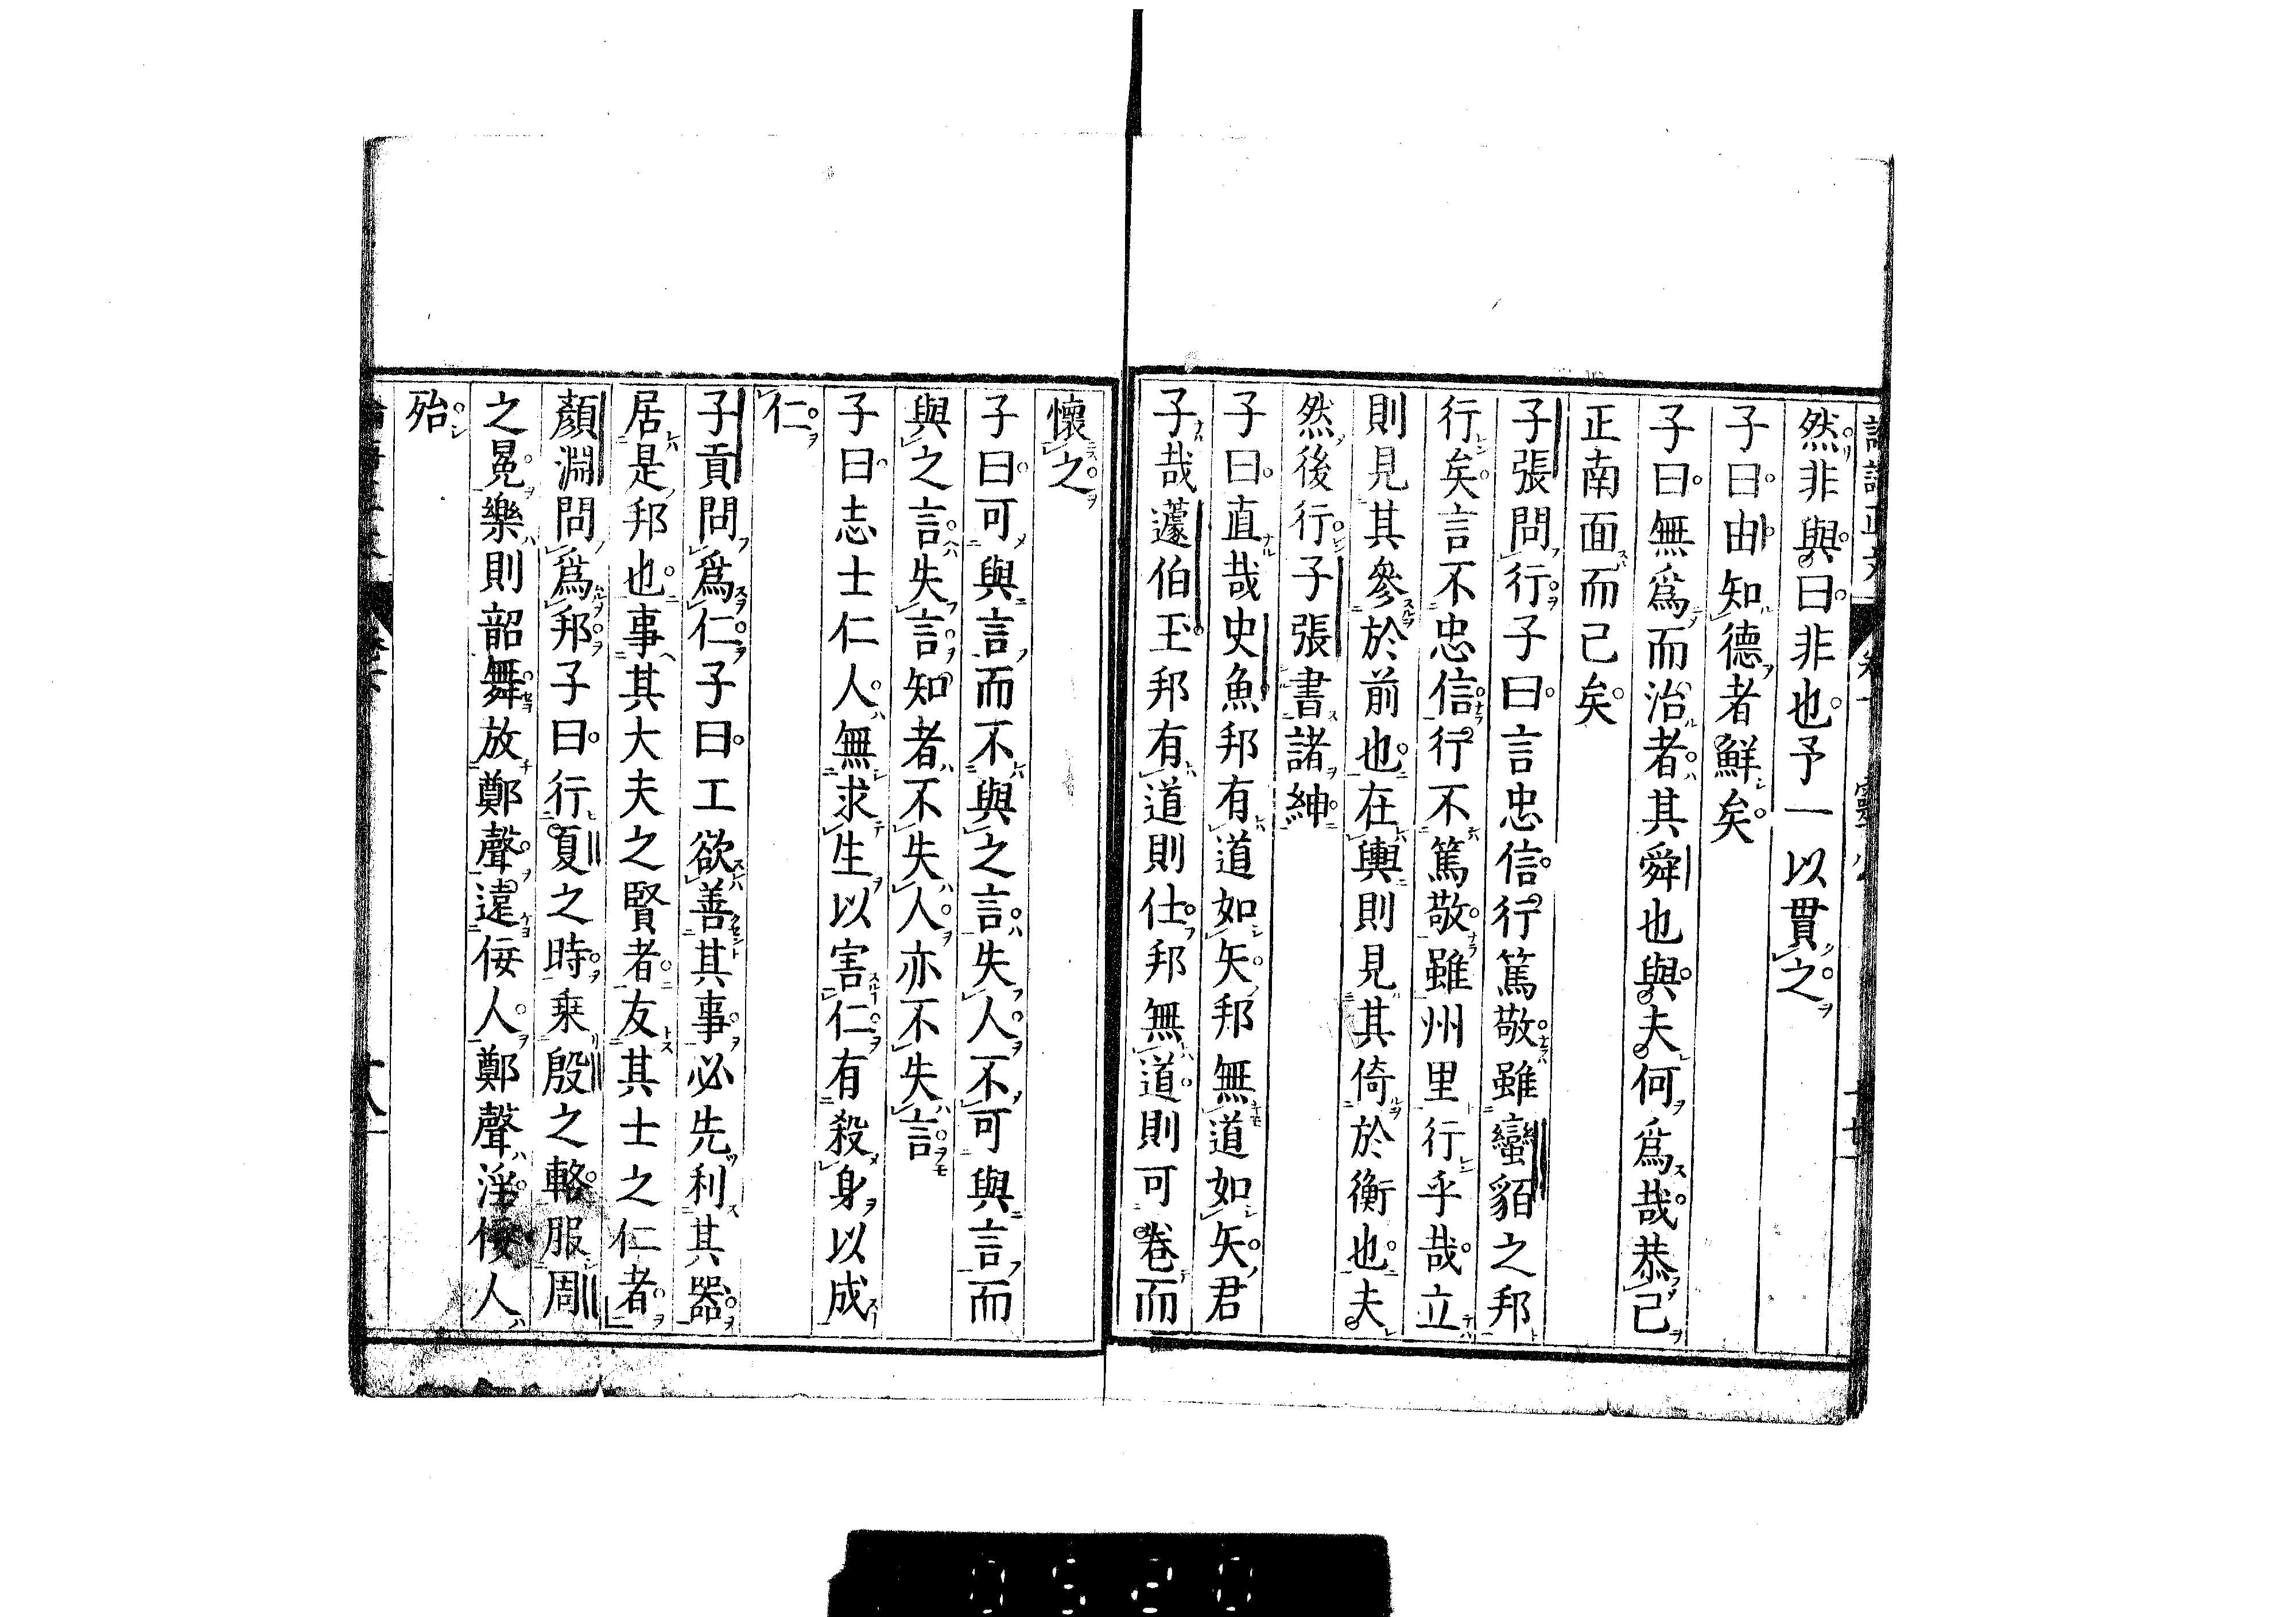 然非與曰非也予一以貫之
子曰由知德者鮮矣
子曰無爲而治者其舜也與夫何爲哉恭己
正南面而已矣
子張問行子曰言忠信行篤敬雖蠻貊之邦
行矣言不忠信行不篤敬雖州里行乎哉立
則見其參於前也在輿則見其倚於衡也夫
然後行子張書諸紳
子曰直哉史魚邦有道如矢邦無道如矢君
子哉蘧伯玉邦有道則仕邦無道則可卷而
懷之
子曰可與言而不與之言失人不可與言而
與之言失言知者不失人亦不失言
子曰志士仁人無求生以害仁有殺身以成
仁
子貢問爲仁子曰工欲善其事必先利其器
居是邦也事其大夫之賢者友其士之仁者
顏淵問爲邦子曰行夏之時乘殷之輅服周
之冕樂則韶舞放鄭聲遠佞人鄭聲淫佞人
殆
0520